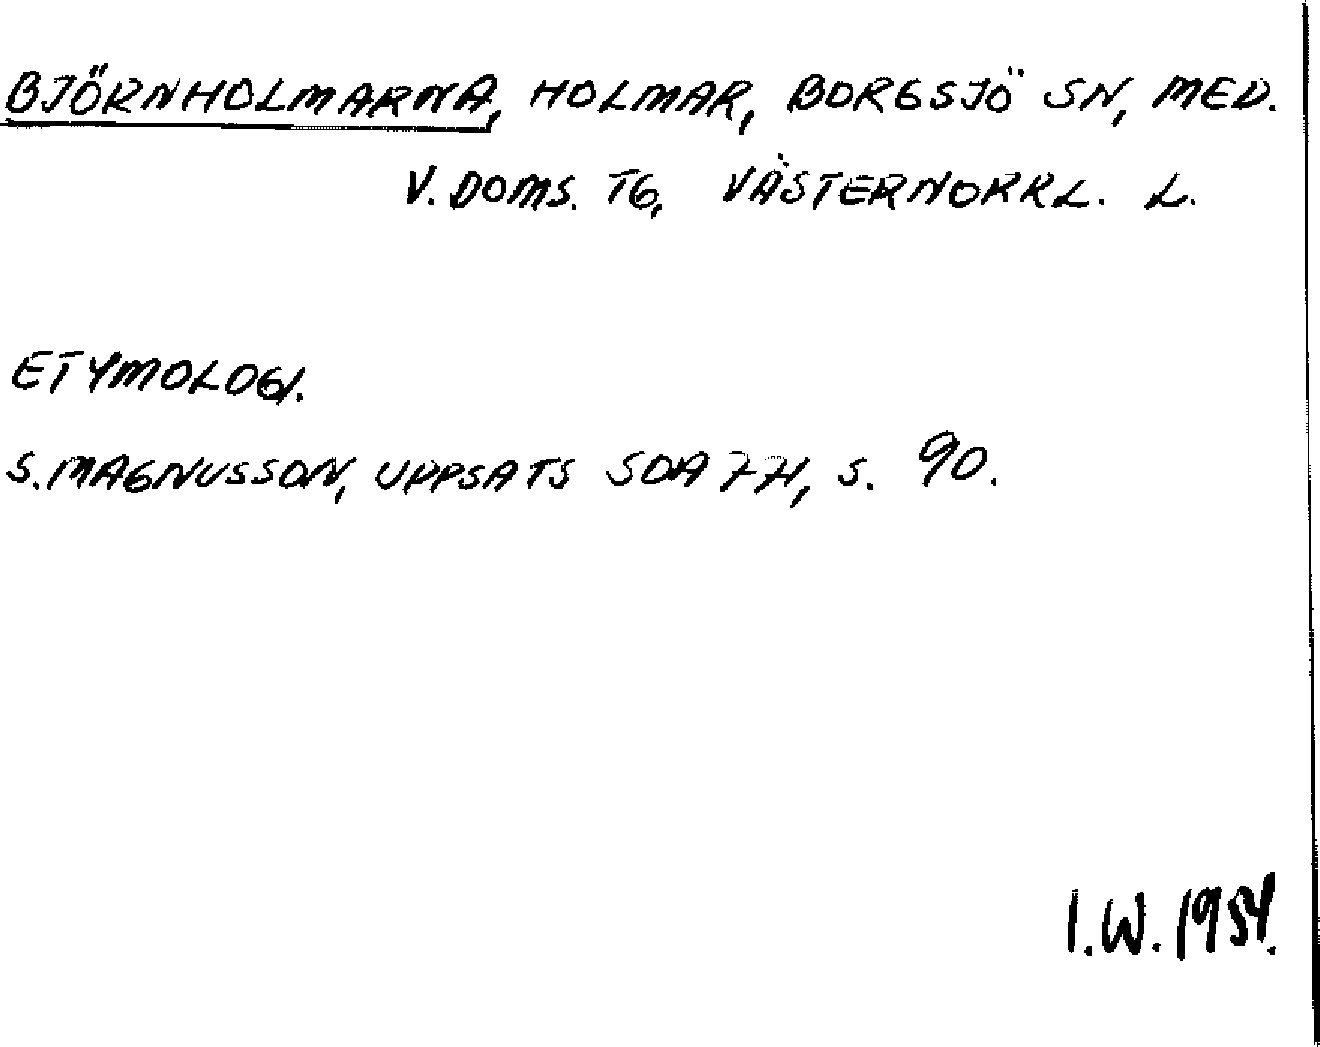 BJÖRNHOLMARNA, HOLMAR, BORGSJÖ SN, MED.
V. DOMS. TG, VÄSTERNORRL. L.
ETYMOLOGI.
S. MAGNUSSON, UPPSATS SOA 774, S. 90.
I.W. 1954.